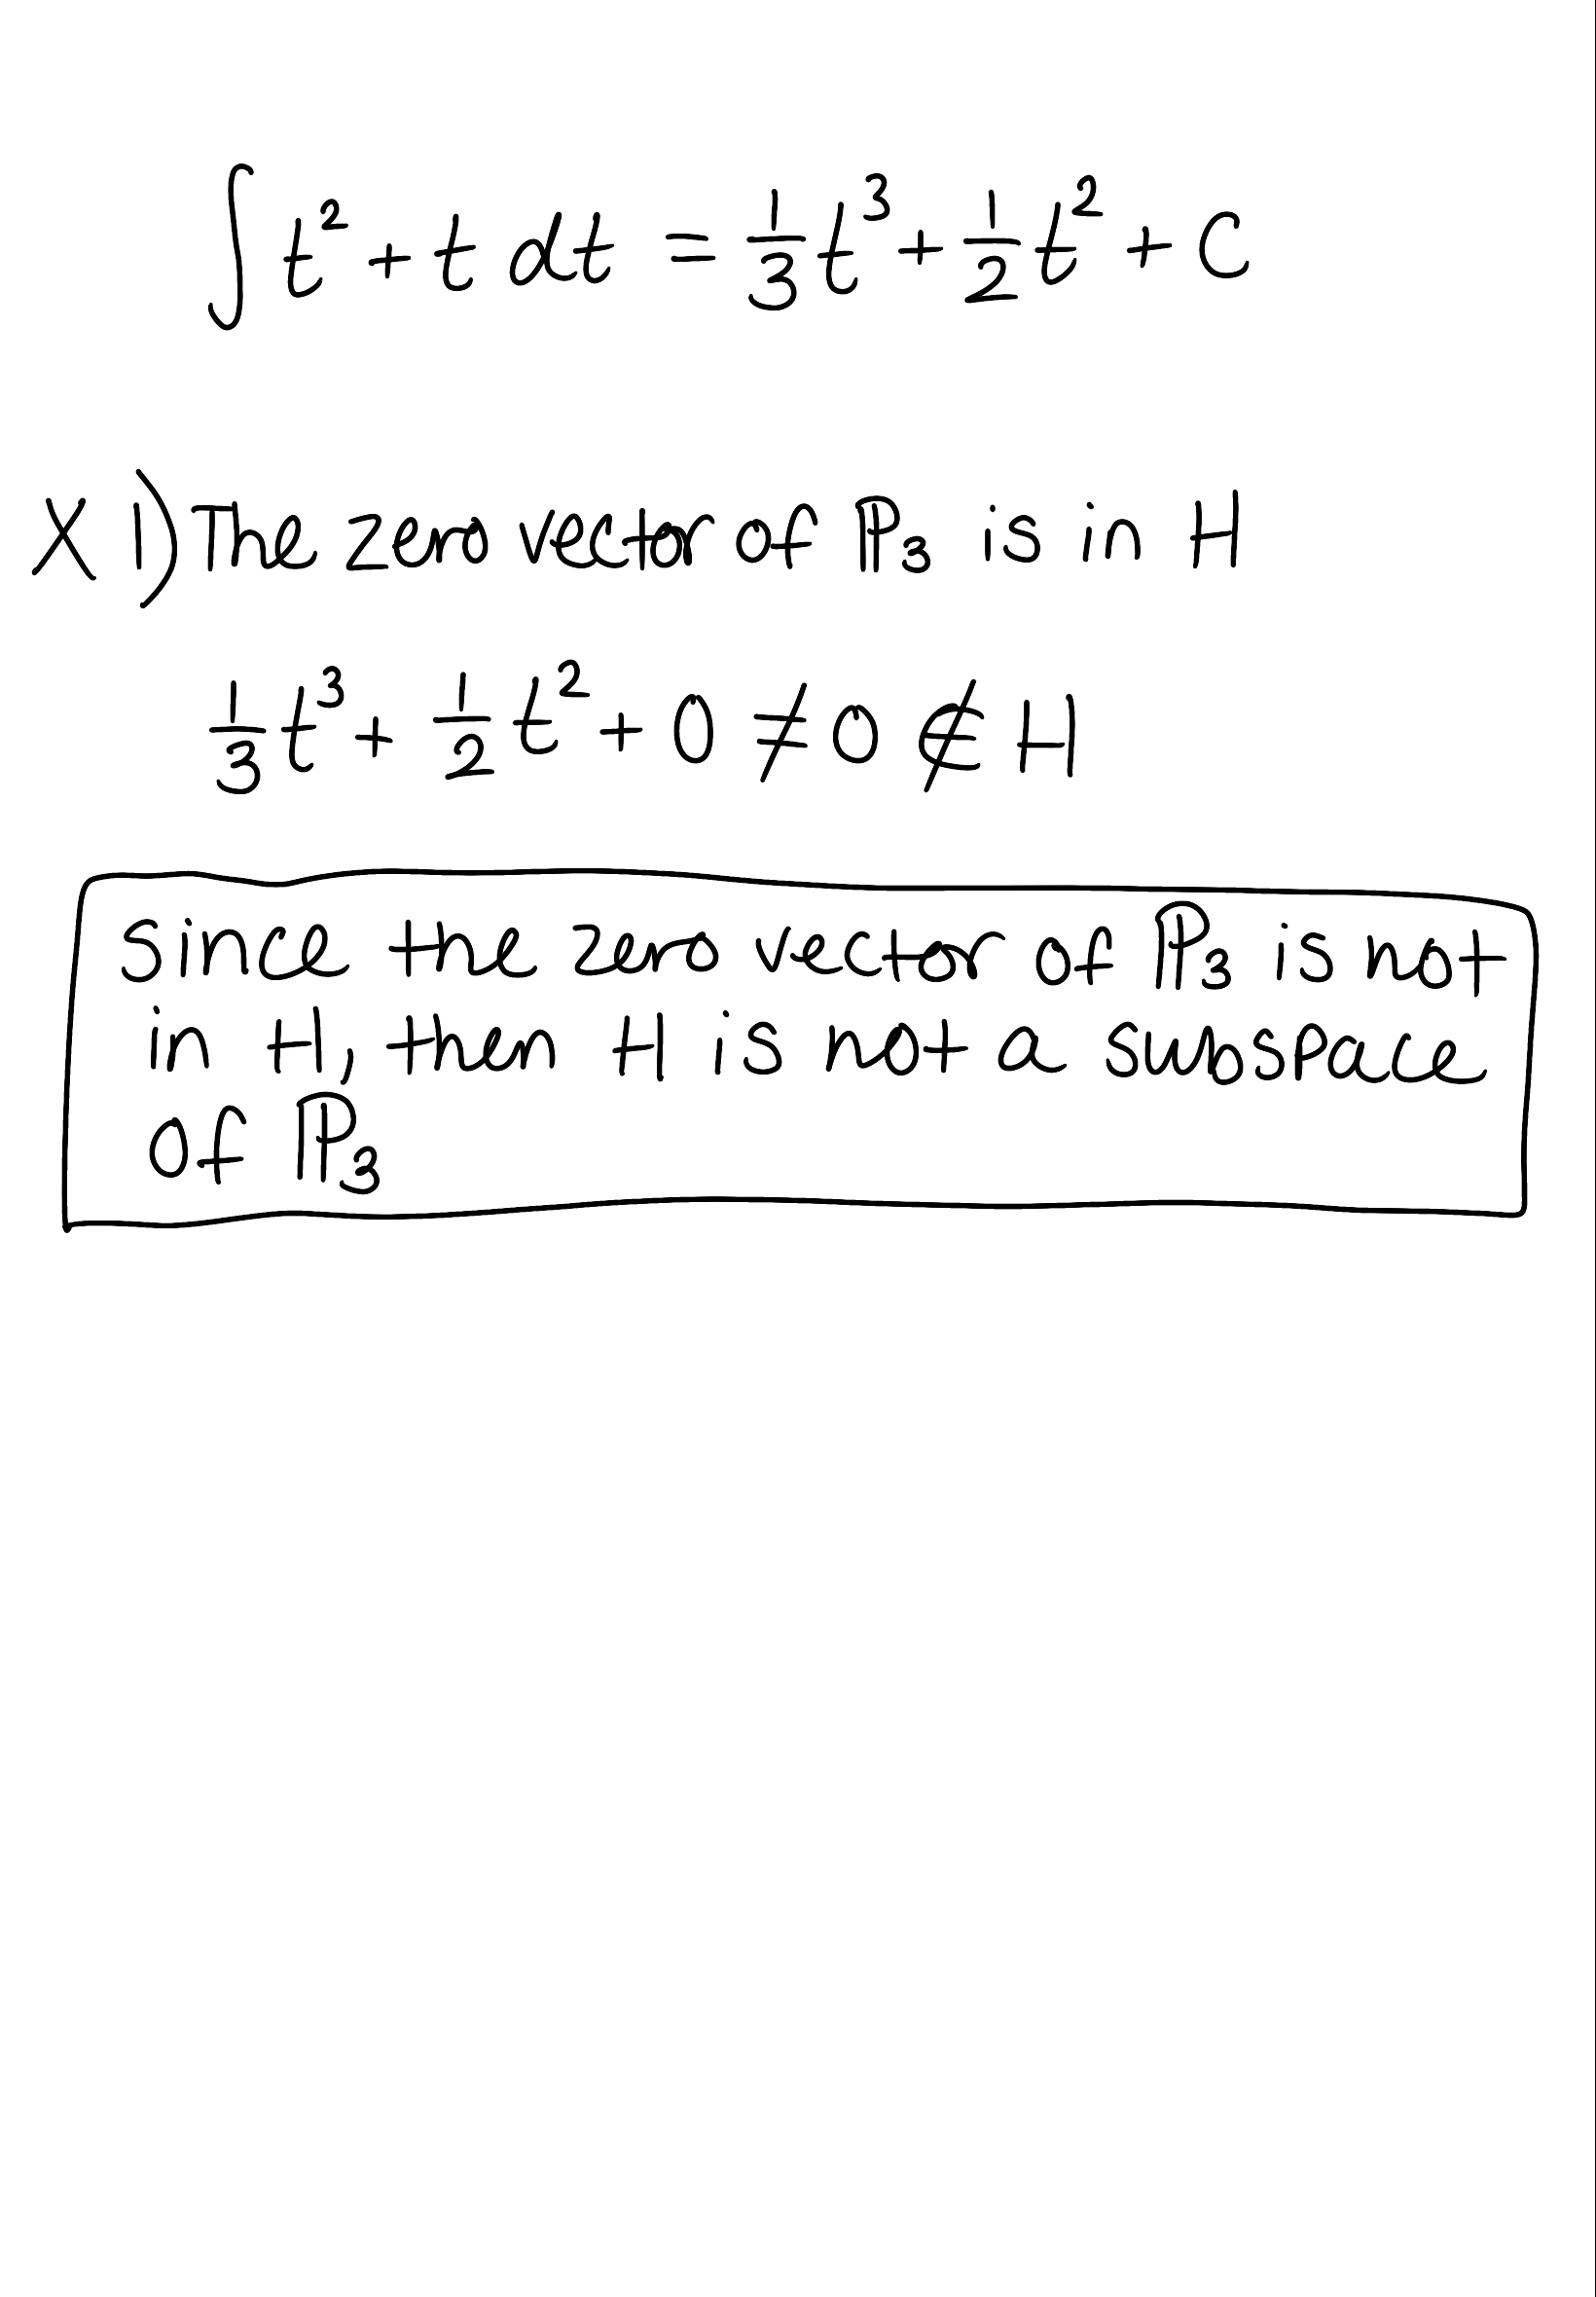 ∫ t² + t dt = 1/3 t³ + 1/2 t² + C
X 1) The zero vector of ℙ₃ is in H
1/3 t³ + 1/2 t² + 0 ≠ 0 ∉ H
Since the zero vector of ℙ₃ is not
in H, then H is not a subspace
of ℙ₃